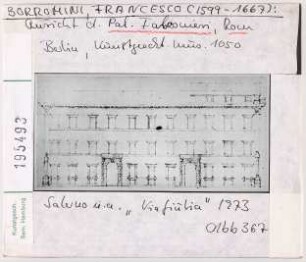 BORROMINI, FRANCESCO (1599-1667):
Ansicht d. Pal. Falconieri, Rom
Berlin, Kunstgewerbe Mus. 1050
195493
Kunstgesch.
Sem. Hamburg
Salerno u.a. „Via Giulia" 1973
0166367